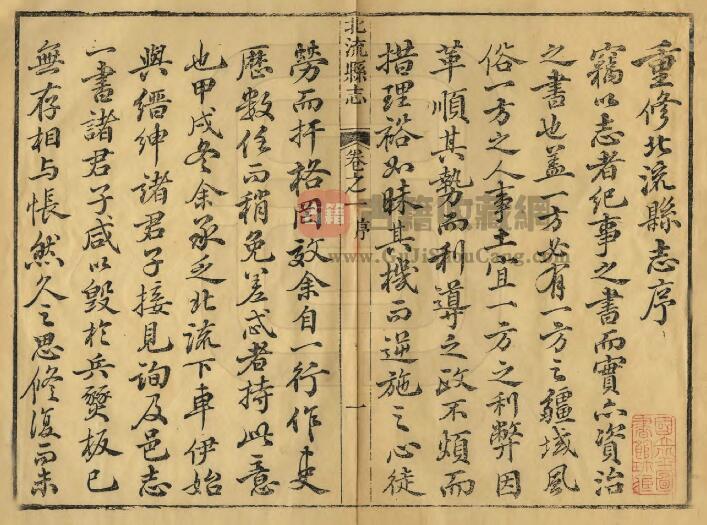 重修北流縣志序
竊以志者紀事之書而實亦資治
之書也蓋一方必有一方之疆域風
俗一方之人事土宜一方之利弊因
革順其勢而利導之政不煩而
措理裕如昧其機而逆施之心徒
北流縣志
卷之一
序
一
勞而扞格罔效余自一行作吏
歷數任而稍免差忒者持此意
也甲戌冬余承乏北流下車伊始
與縉紳諸君子接見詢及邑志
一書諸君子咸以毀於兵燹板已
無存相与悵然久之思修復而未
古籍
古籍收藏網
www.GuJiShouCang.com